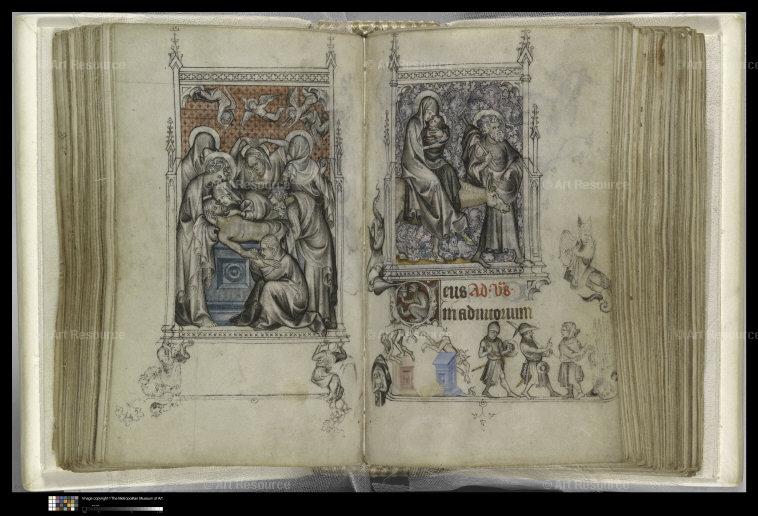 eus Ad. v̄s.
m adiutorium
© Art Resource
© Art Resource
© Art Resource
© Art Resource
© Art Resource
© Art Resource
Image copyright The Metropolitan Museum of Art